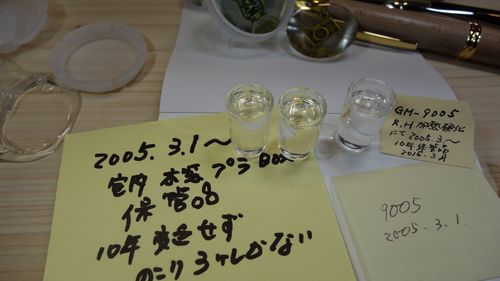 2005. 3.1〜
室内 本箱 プラBOX
保管品
10年 変色せず
GM-9005
R.H 加熱硬化
にて2005.3〜
10年保管品
2016.3月
9005
2005.3.1.